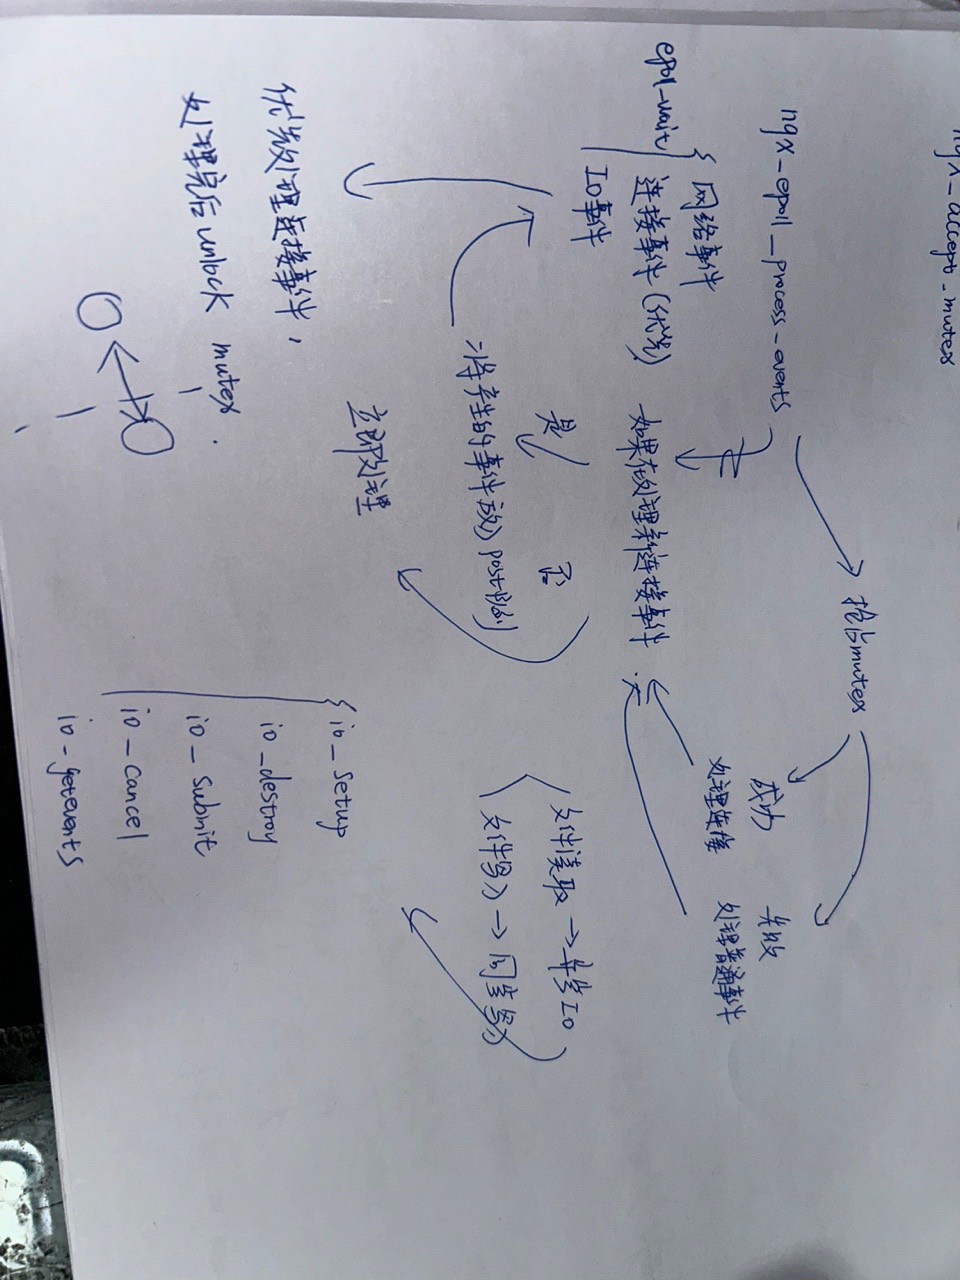 ngx_accept_mutex
ngx_epoll_process_events
抢占mutex
成功
处理连接
失败
处理普通事件
epoll_wait
网络事件
连接事件(优先)
IO事件
如果在处理新连接事件
是
否
将产生的事件放入post队列
立即处理
优先处理连接事件,
处理完后unlock mutex.
文件读取→异步IO
文件写入→同步写入
io_setup
io_destroy
io_submit
io_cancel
io_getevents